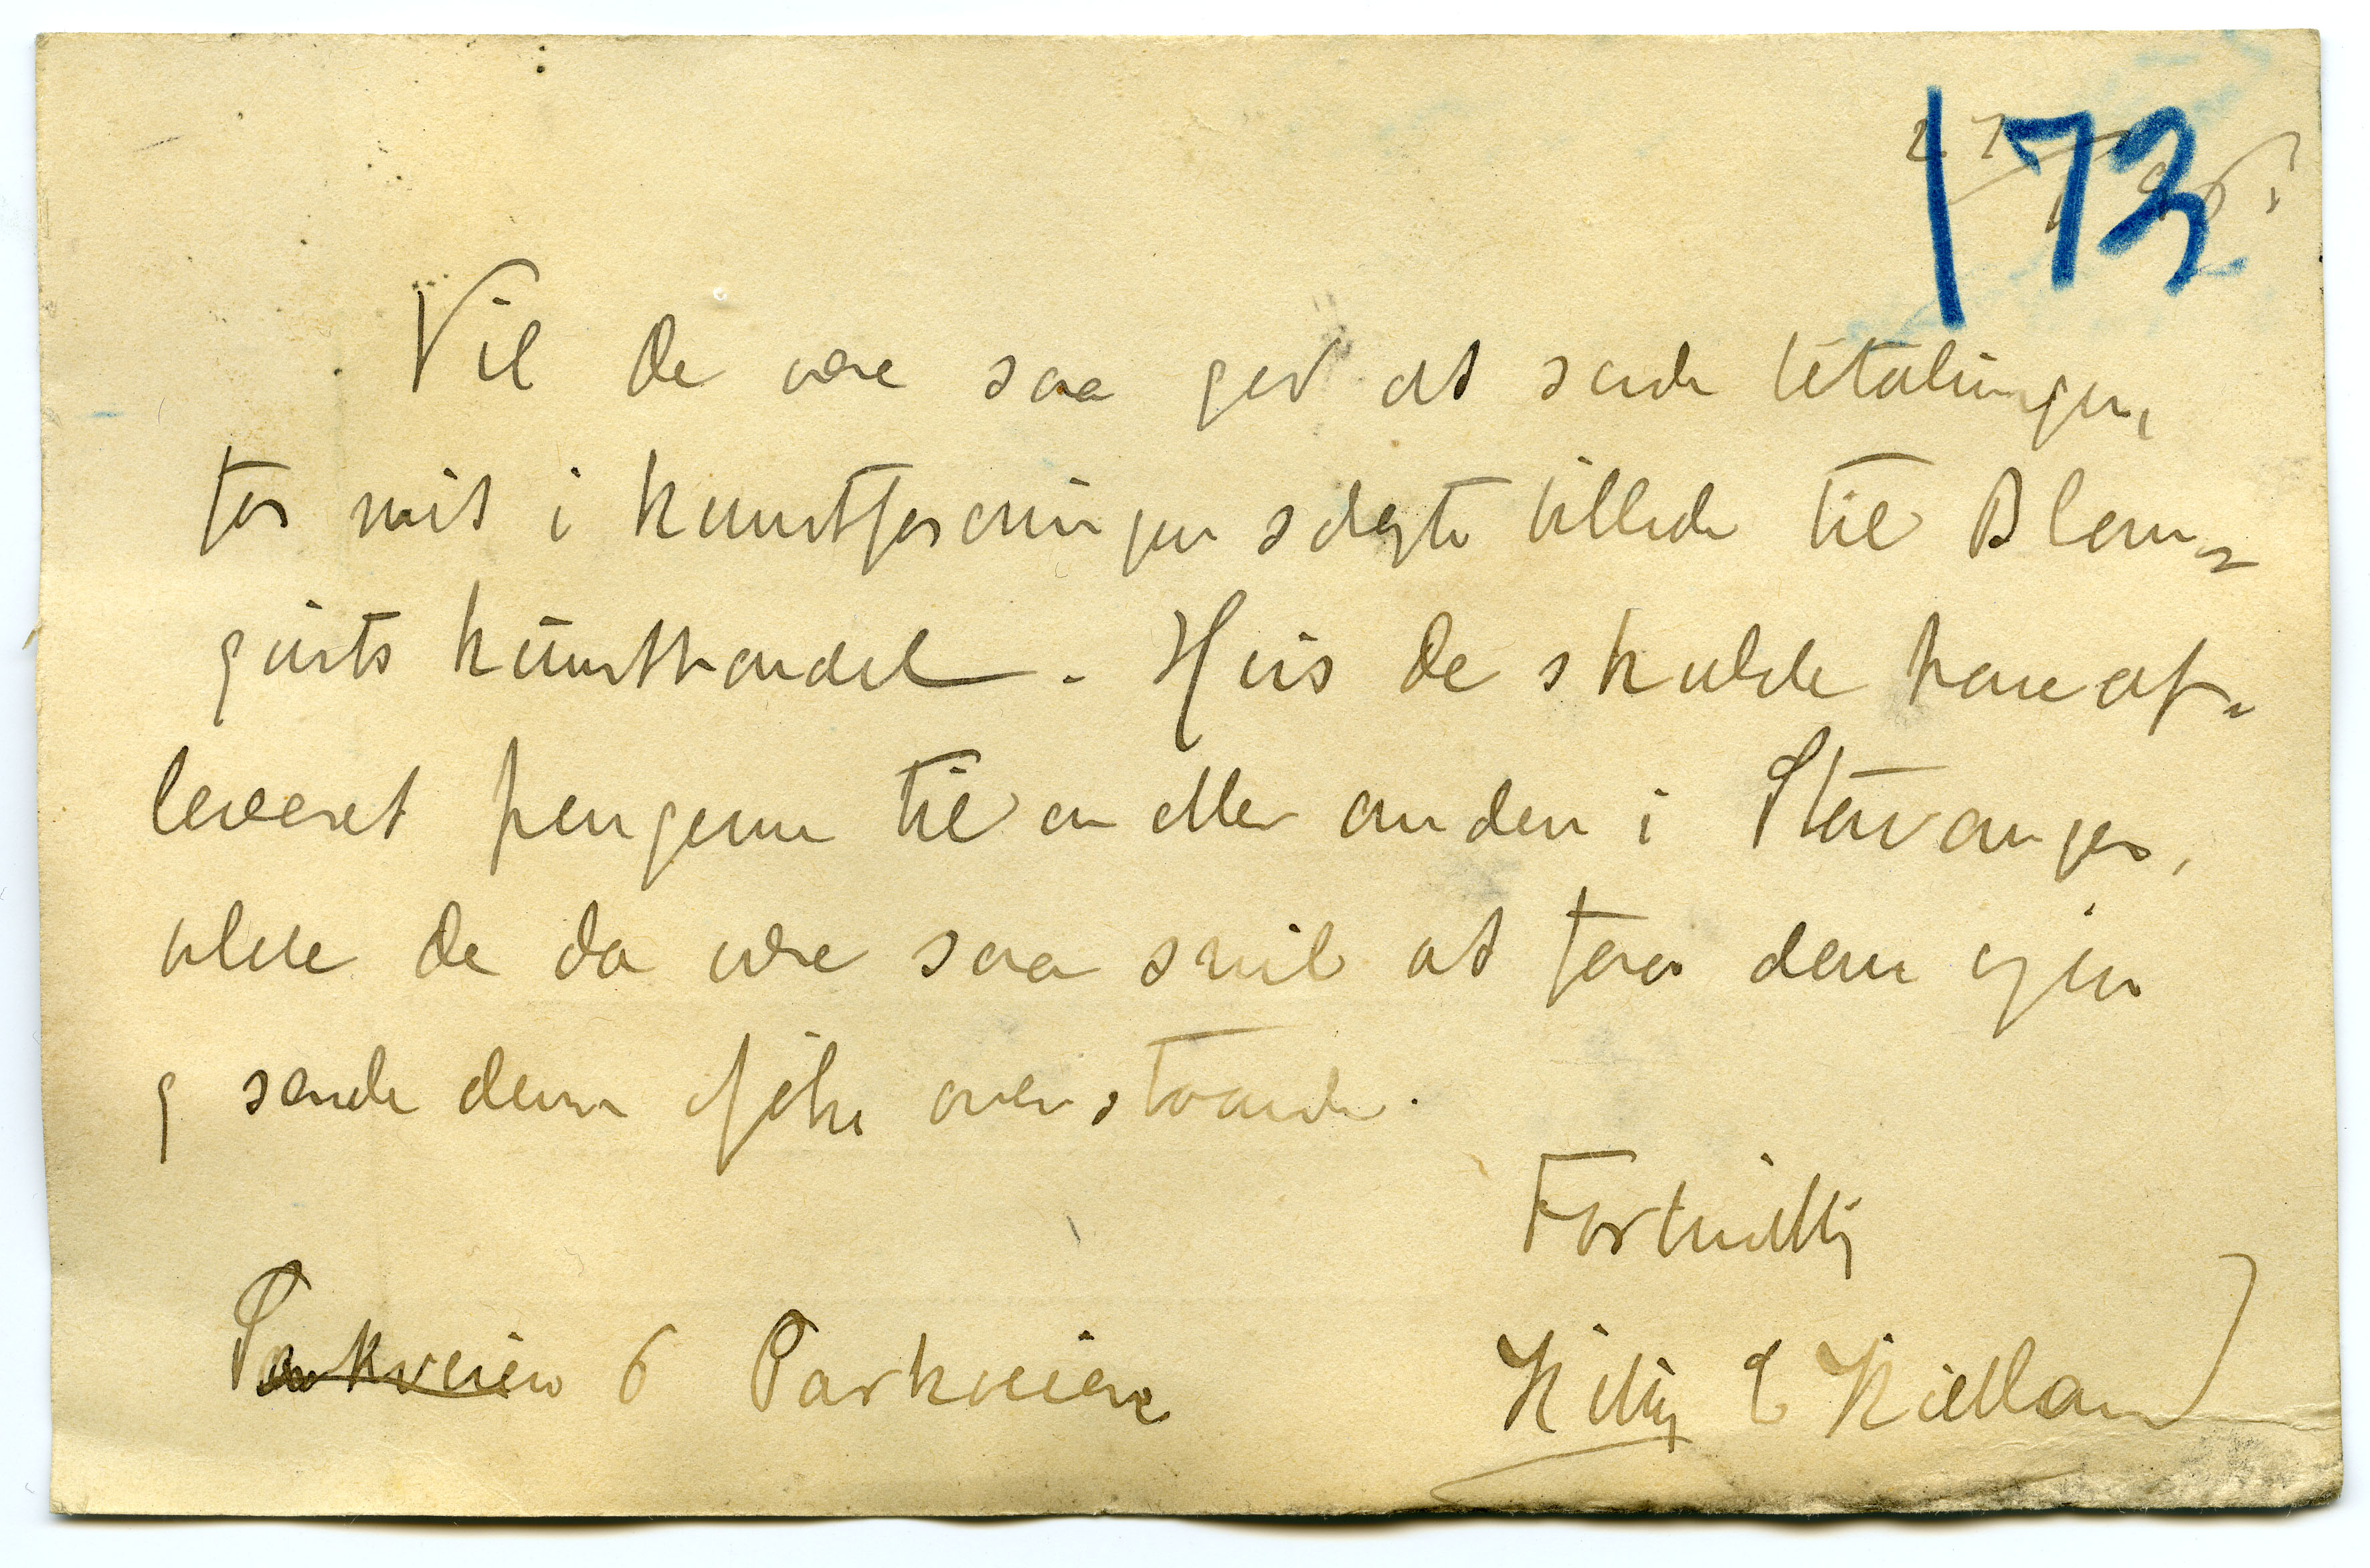 173
Vil De være saa god at sende betalingen,
for mit i kunstforeningen solgte billede til Blom=
qvists kunsthandel. Hvis De skulde have af-
leveret pengene til en eller anden i Stavanger,
vilde De da være saa snil at faa dem igjen
og sende dem ifølge ovenstaaende.
Forbindtlig
Parkveien 6 Parkveien Kitty L Kielland